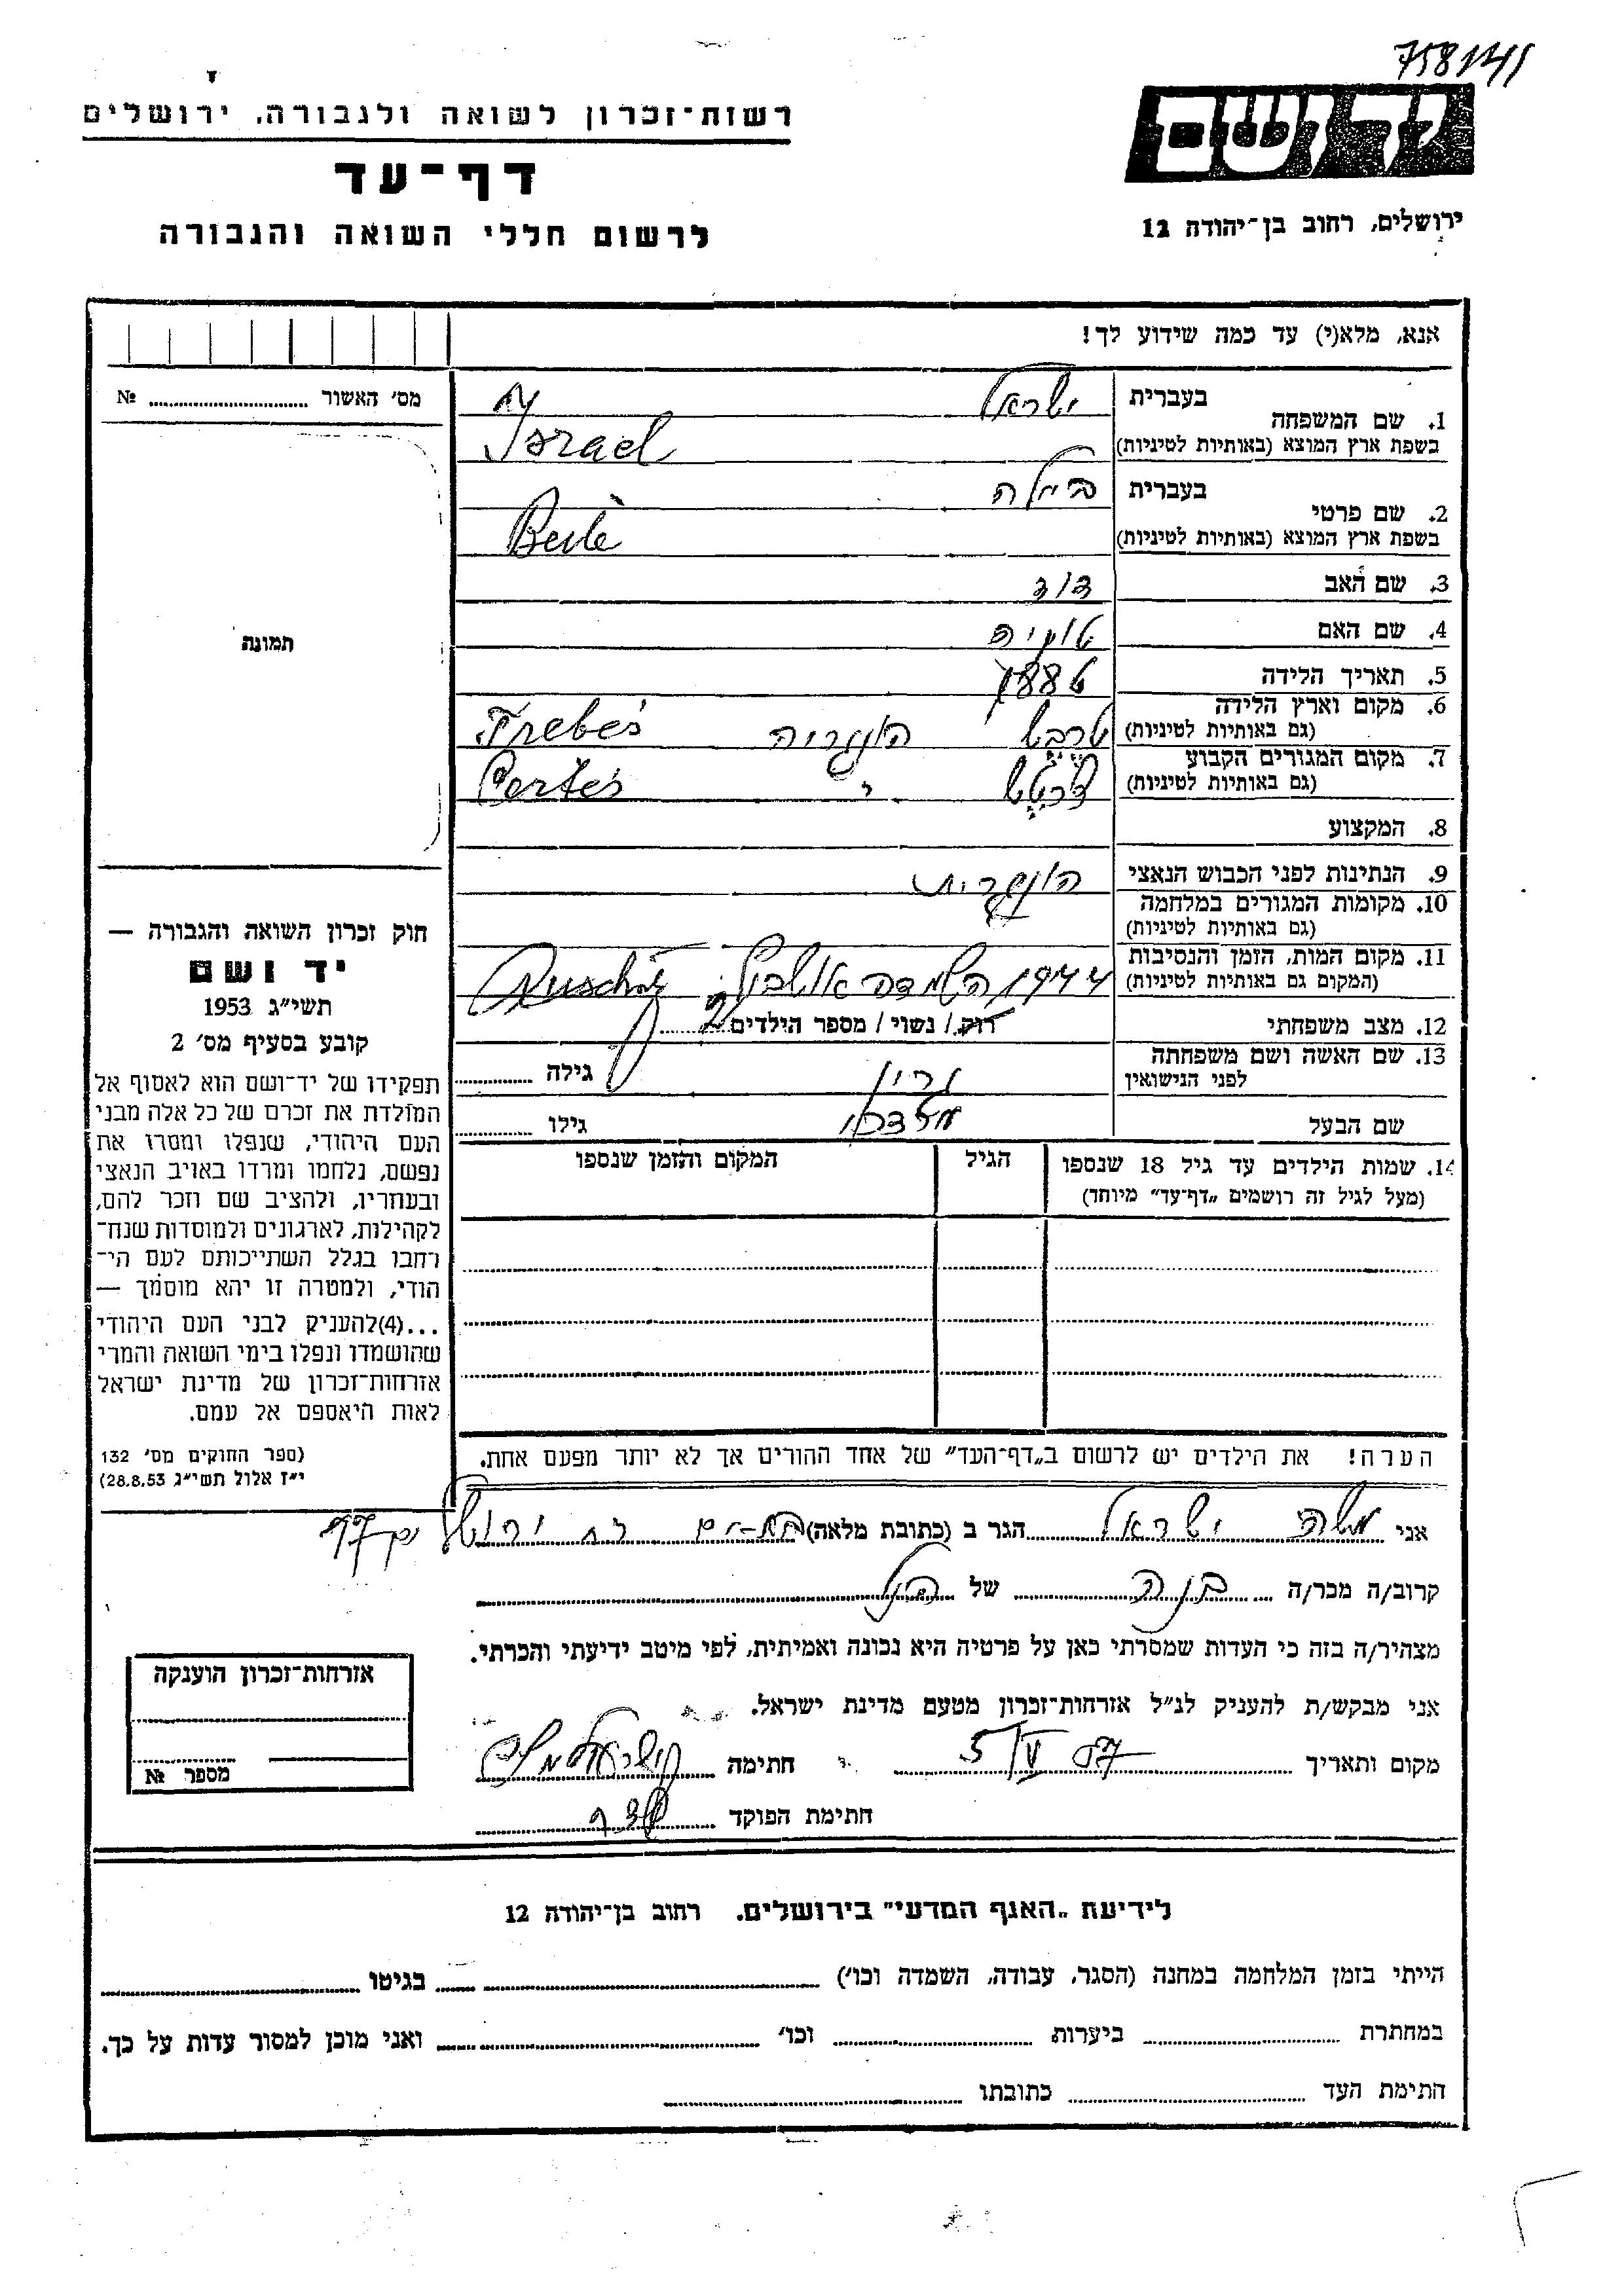 758141
יד ושם
ירושלים, רחוב בן־יהודה 12
רשות־זכרון לשואה ולגבורה, ירושלים
דף־עד
לרשום חללי השואה והגבורה
אנא, מלא(י) עד כמה שידוע לך!
מס׳ האשור № 
1. שם המשפחה
בעברית ישראל
בשפת ארץ המוצא (באותיות לטיניות) Israel
2. שם פרטי
בעברית ביילה
בשפת ארץ המוצא (באותיות לטיניות)
3. שם האב דוד
4. שם האם
5. תאריך הלידה
6. מקום וארץ הלידה הונגריה Trebes
(גם באותיות לטיניות)
7. מקום המגורים הקבוע
(גם באותיות לטיניות)
8. המקצוע
9. הנתינות לפני הכבוש הנאצי הונגרית
10. מקומות המגורים במלחמה
(גם באותיות לטיניות)
11. מקום המות, הזמן והנסיבות 1944 השמדה
(המקום גם באותיות לטיניות)
12. מצב משפחתי רוק / נשוי / מספר הילדים
13. שם האשה ושם משפחתה גילה
לפני הנישואין
שם הבעל גילו
14. שמות הילדים עד גיל 18 שנספו הגיל המקום והזמן שנספו
(מעל לגיל זה רושמים „דף־עד״ מיוחד)
הערה! את הילדים יש לרשום ב„דף־העד״ של אחד ההורים אך לא יותר מפעם אחת.
תמונה
חוק זכרון השואה והגבורה —
יד ושם
תשי״ג 1953
קובע בסעיף מס׳ 2
תפקידו של יד־ושם הוא לאסוף אל
המולדת את זכרם של כל אלה מבני
העם היהודי, שנפלו ומסרו את
נפשם, נלחמו ומרדו באויב הנאצי
ובעוזריו, ולהציב שם וזכר להם,
לקהילות, לארגונים ולמוסדות שנח־
רחבו בגלל השתייכותם לעם הי־
הודי, ולמטרה זו יהא מוסמך —
...(4)להעניק לבני העם היהודי
שהושמדו ונפלו בימי השואה והמרי
אזרחות־זכרון של מדינת ישראל
לאות היאספם אל עמם.
(ספר החוקים מס׳ 132
י״ז אלול תשי״ג 28.8.53)
אני משה ישראל הגר ב (כתובת מלאה)
קרוב/ה מכר/ה בנה של הנ״ל
מצהיר/ה בזה כי העדות שמסרתי כאן על פרטיה היא נכונה ואמיתית, לפי מיטב ידיעתי והכרתי.
אני מבקש/ת להעניק לנ״ל אזרחות־זכרון מטעם מדינת ישראל.
מקום ותאריך 5/V 57 חתימה
חתימת הפוקד
אזרחות־זכרון הוענקה
מספר №
לידיעת „האגף המדעי״ בירושלים, רחוב בן־יהודה 12
הייתי בזמן המלחמה במחנה (הסגר, עבודה, השמדה וכו׳) בגיטו
במחתרת ביערות וכו׳ ואני מוכן למסור עדות על כך.
התימת העד כתובתו